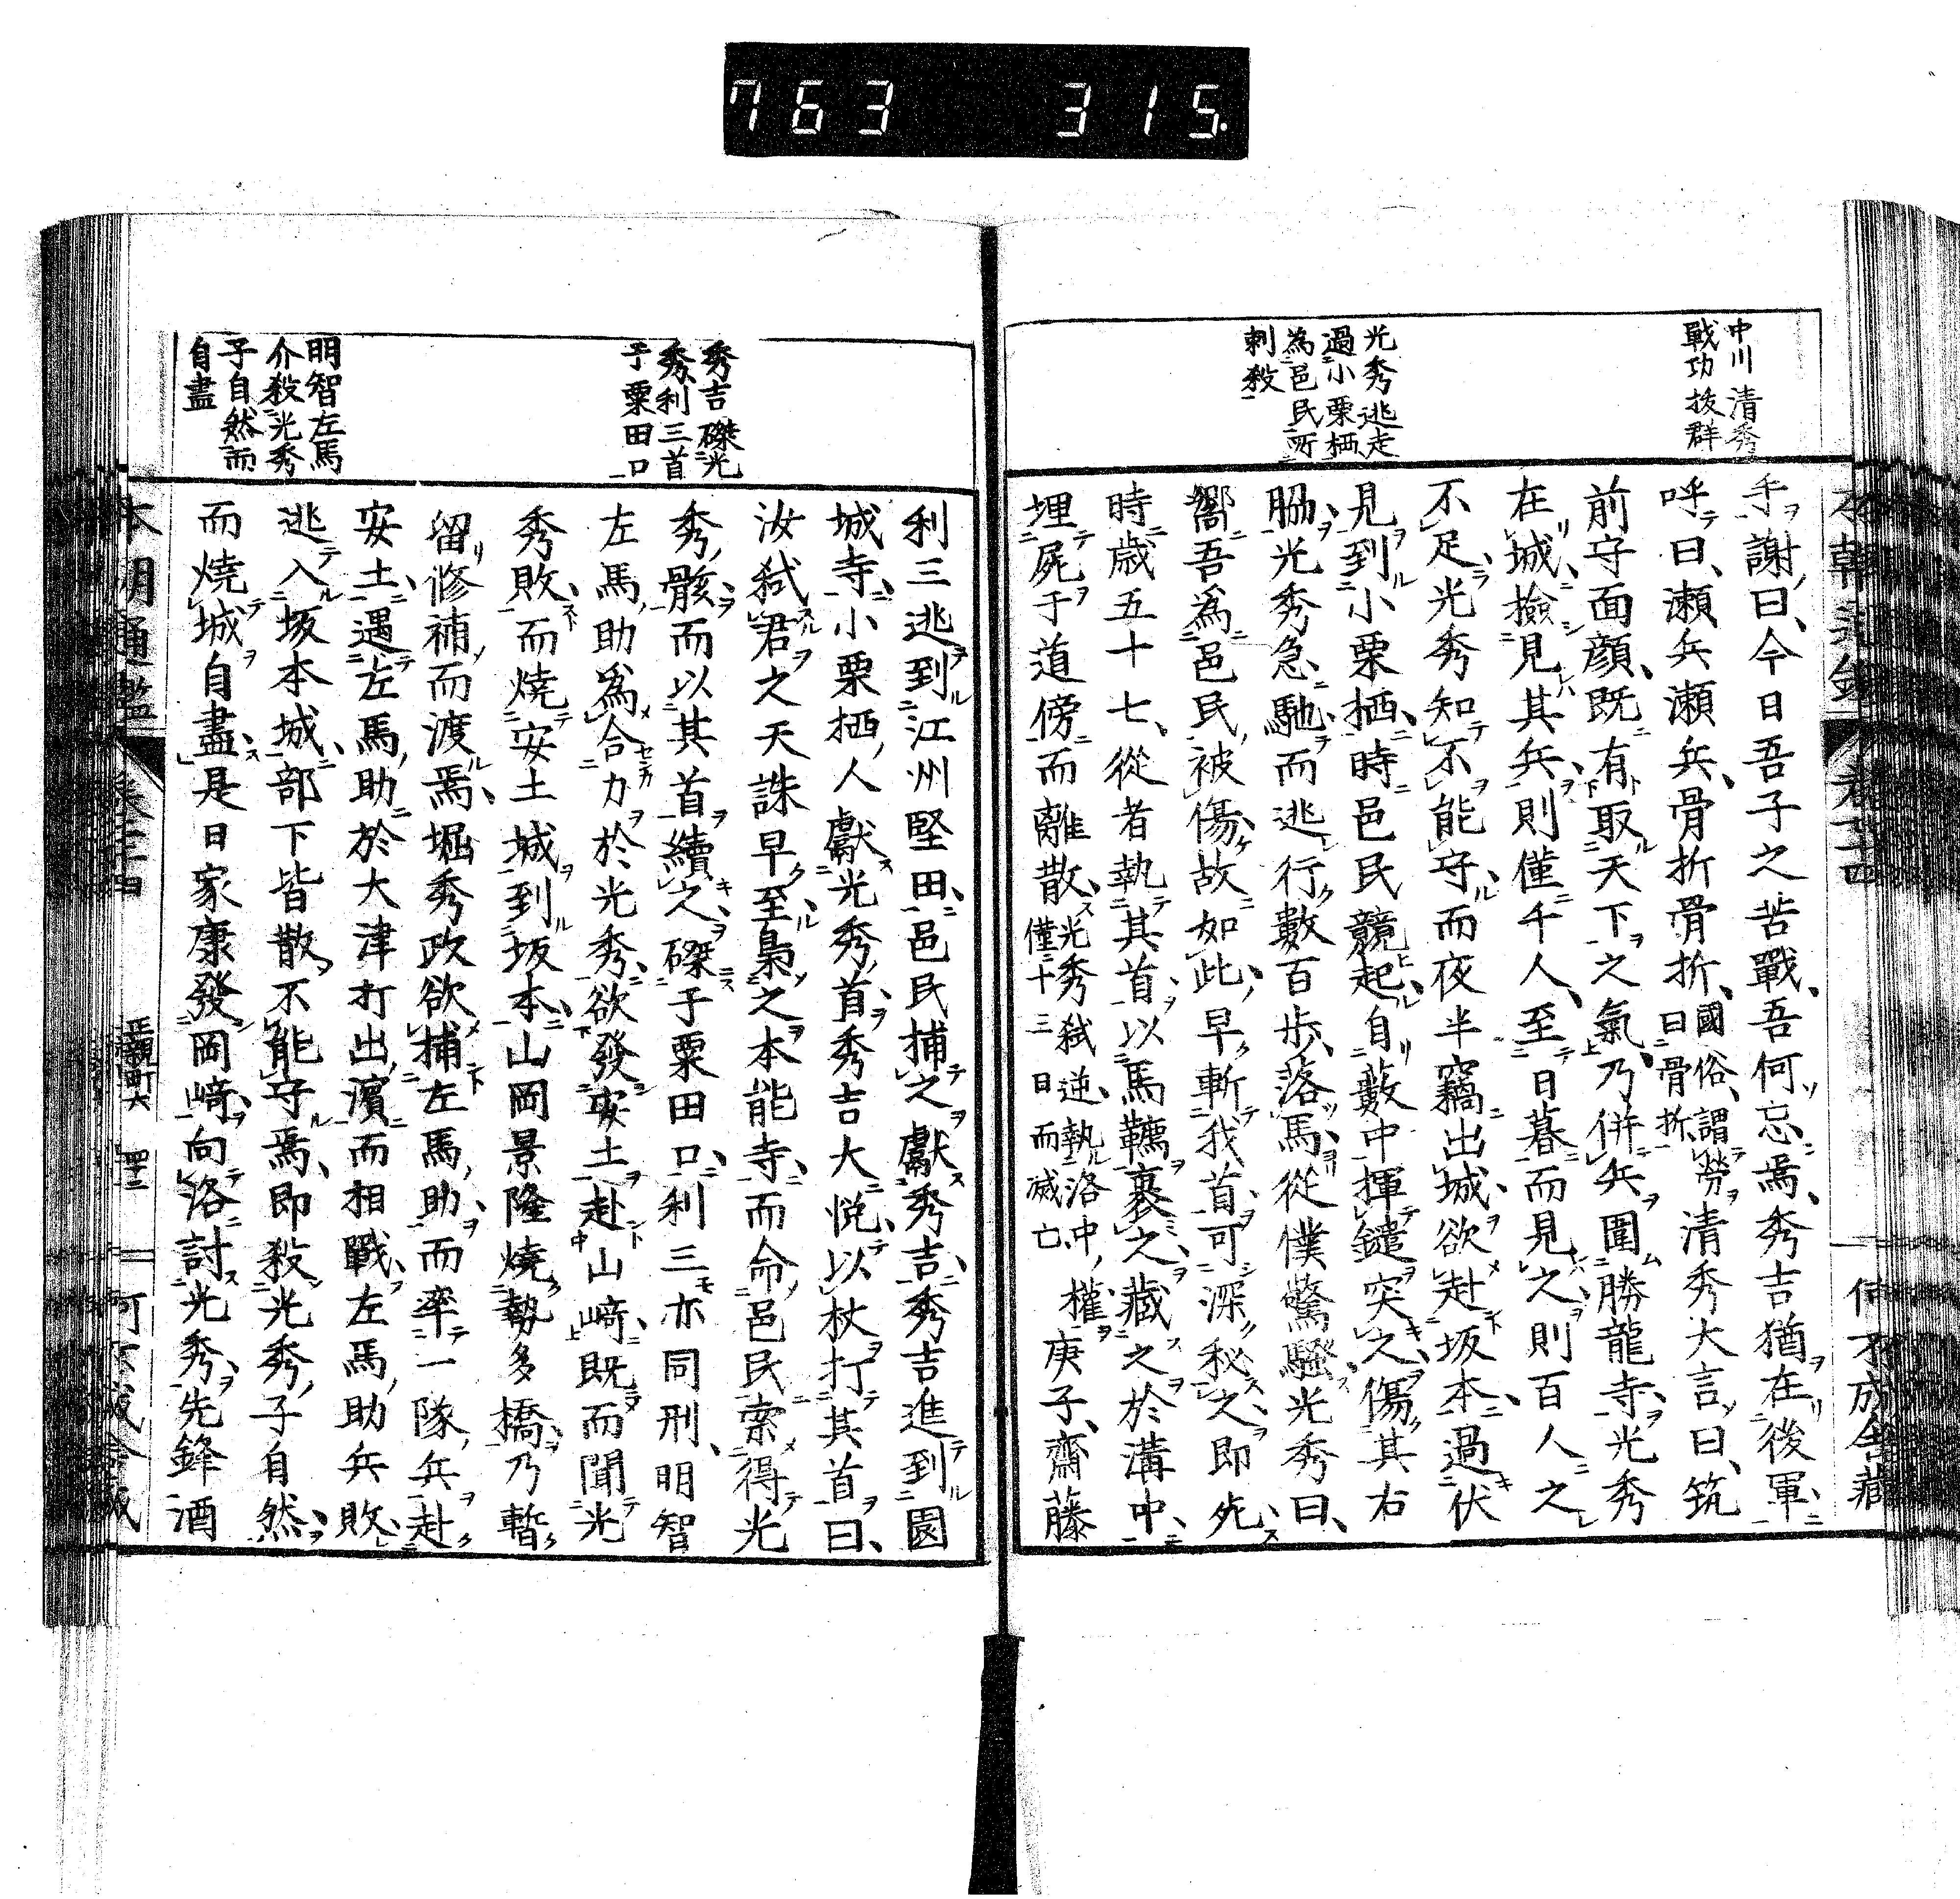 763 315.
中川清秀
戰功拔群
光秀逃走
過小栗栖
為邑民所
刺殺
手謝曰今日吾子之苦戰吾何忘焉秀吉猶在後軍
呼曰瀬兵瀬兵骨折骨折國俗謂勞曰骨折清秀大言曰筑
前守面顔既有取天下之氣乃併兵圍勝龍寺光秀
在城撿見其兵則僅千人至日暮而見之則百人之
不足光秀知不能守而夜半竊出城欲赴坂本過伏
見到小栗栖時邑民競起自藪中揮鑓突之傷其右
脇光秀急馳而逃行數百歩落馬從僕驚騷光秀曰
嚮吾爲邑民被傷故如此早斬我首可深秘之即死
時歳五十七從者執其首以馬韉裹之藏之於溝中
埋屍于道傍而離散光秀弑逆執洛中權僅十三日而滅亡庚子齋藤
秀吉磔光
秀利三首
于粟田口
明智左馬
介殺光秀
子自然而
自盡
利三逃到江州堅田邑民捕之獻秀吉秀吉進到園
城寺小栗栖人獻光秀首秀吉大悦以杖打其首曰
汝弑君之天誅早至梟之本能寺而命邑民索得光
秀骸而以其首續之磔于粟田口利三亦同刑明智
左馬助爲合力於光秀欲發安土赴山﨑既而聞光
秀敗而燒安土城到坂本山岡景隆燒勢多橋乃暫
留修補而渡焉堀秀政欲捕左馬助而率一隊兵赴
安土遇左馬助於大津打出濱而相戰左馬助兵敗
逃入坂本城部下皆散不能守焉即殺光秀子自然
而燒城自盡是日家康發岡﨑向洛討光秀先鋒酒